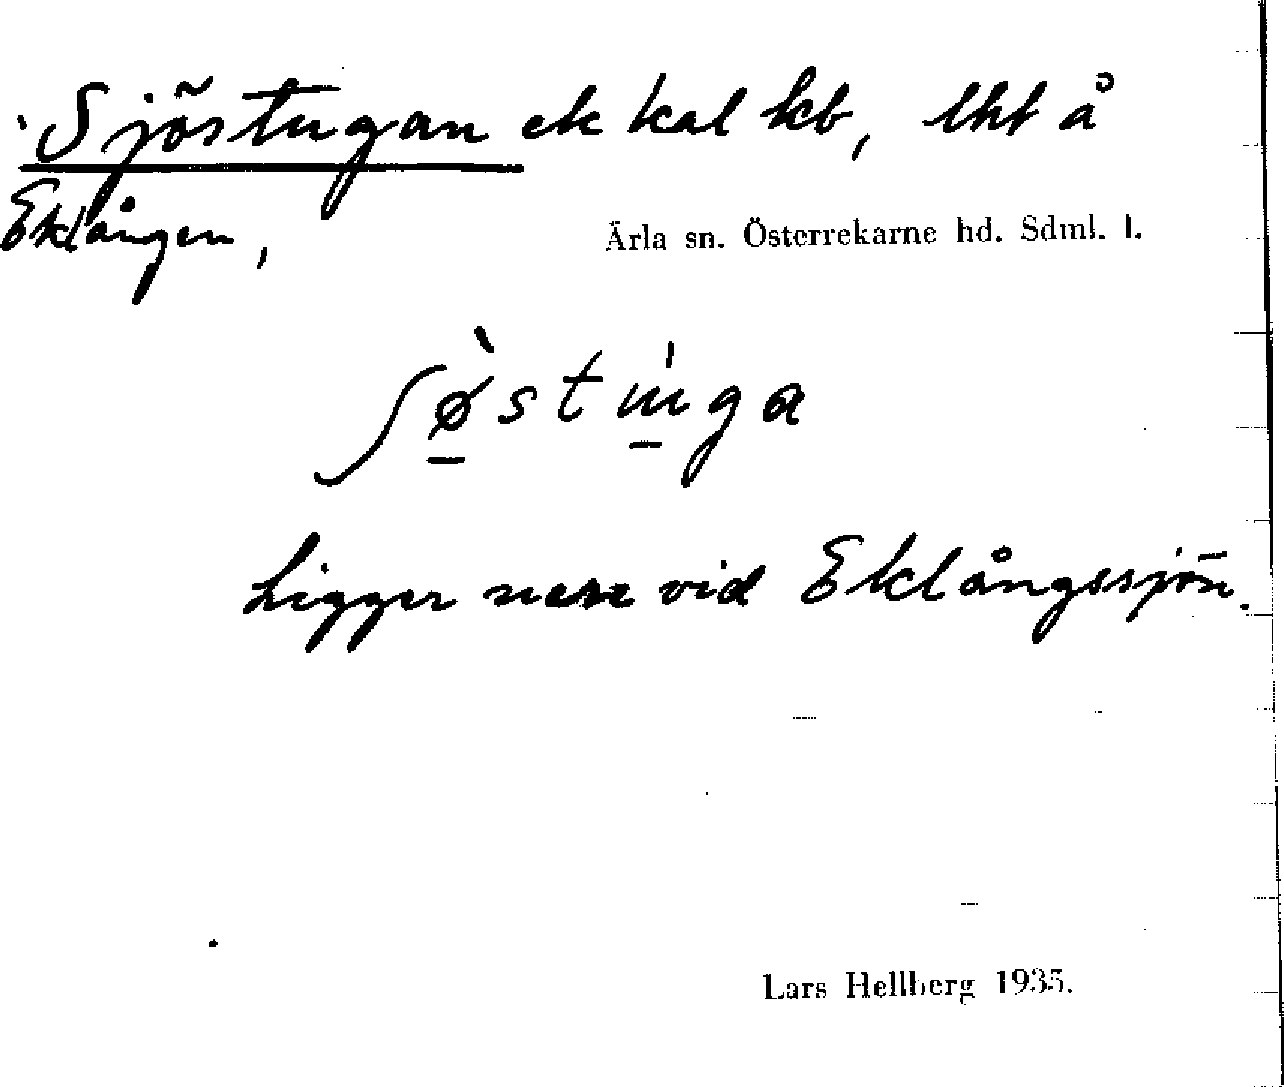 Sjöstugan ek kal kb, lht å
Eklången,
Ärla sn. Österrekarne hd. Sdml. l.
Ligger nere vid Eklångssjön.
Lars Hellberg 1935.